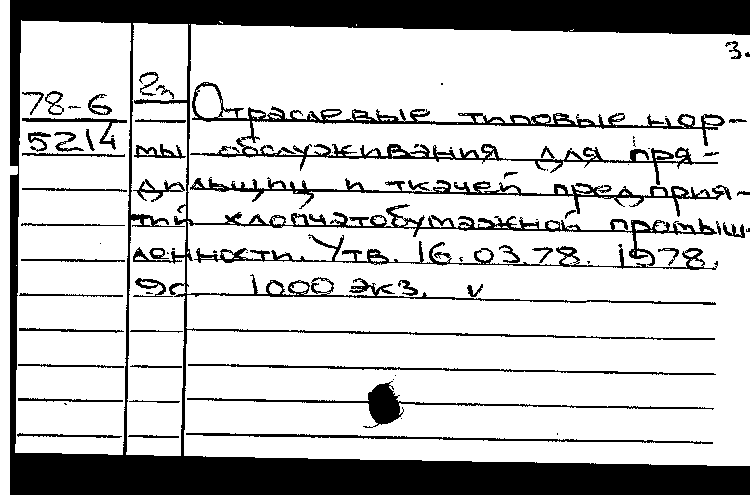 3.
2э Отраслевые типовые нор-
78-6
5214 мы обслуживания для пря-
дильщиц и ткачей предприя-
тий хлопчатобумажной промыш-
ленности. Утв. 16.03.78. 1978.
9с 1000 экз. v